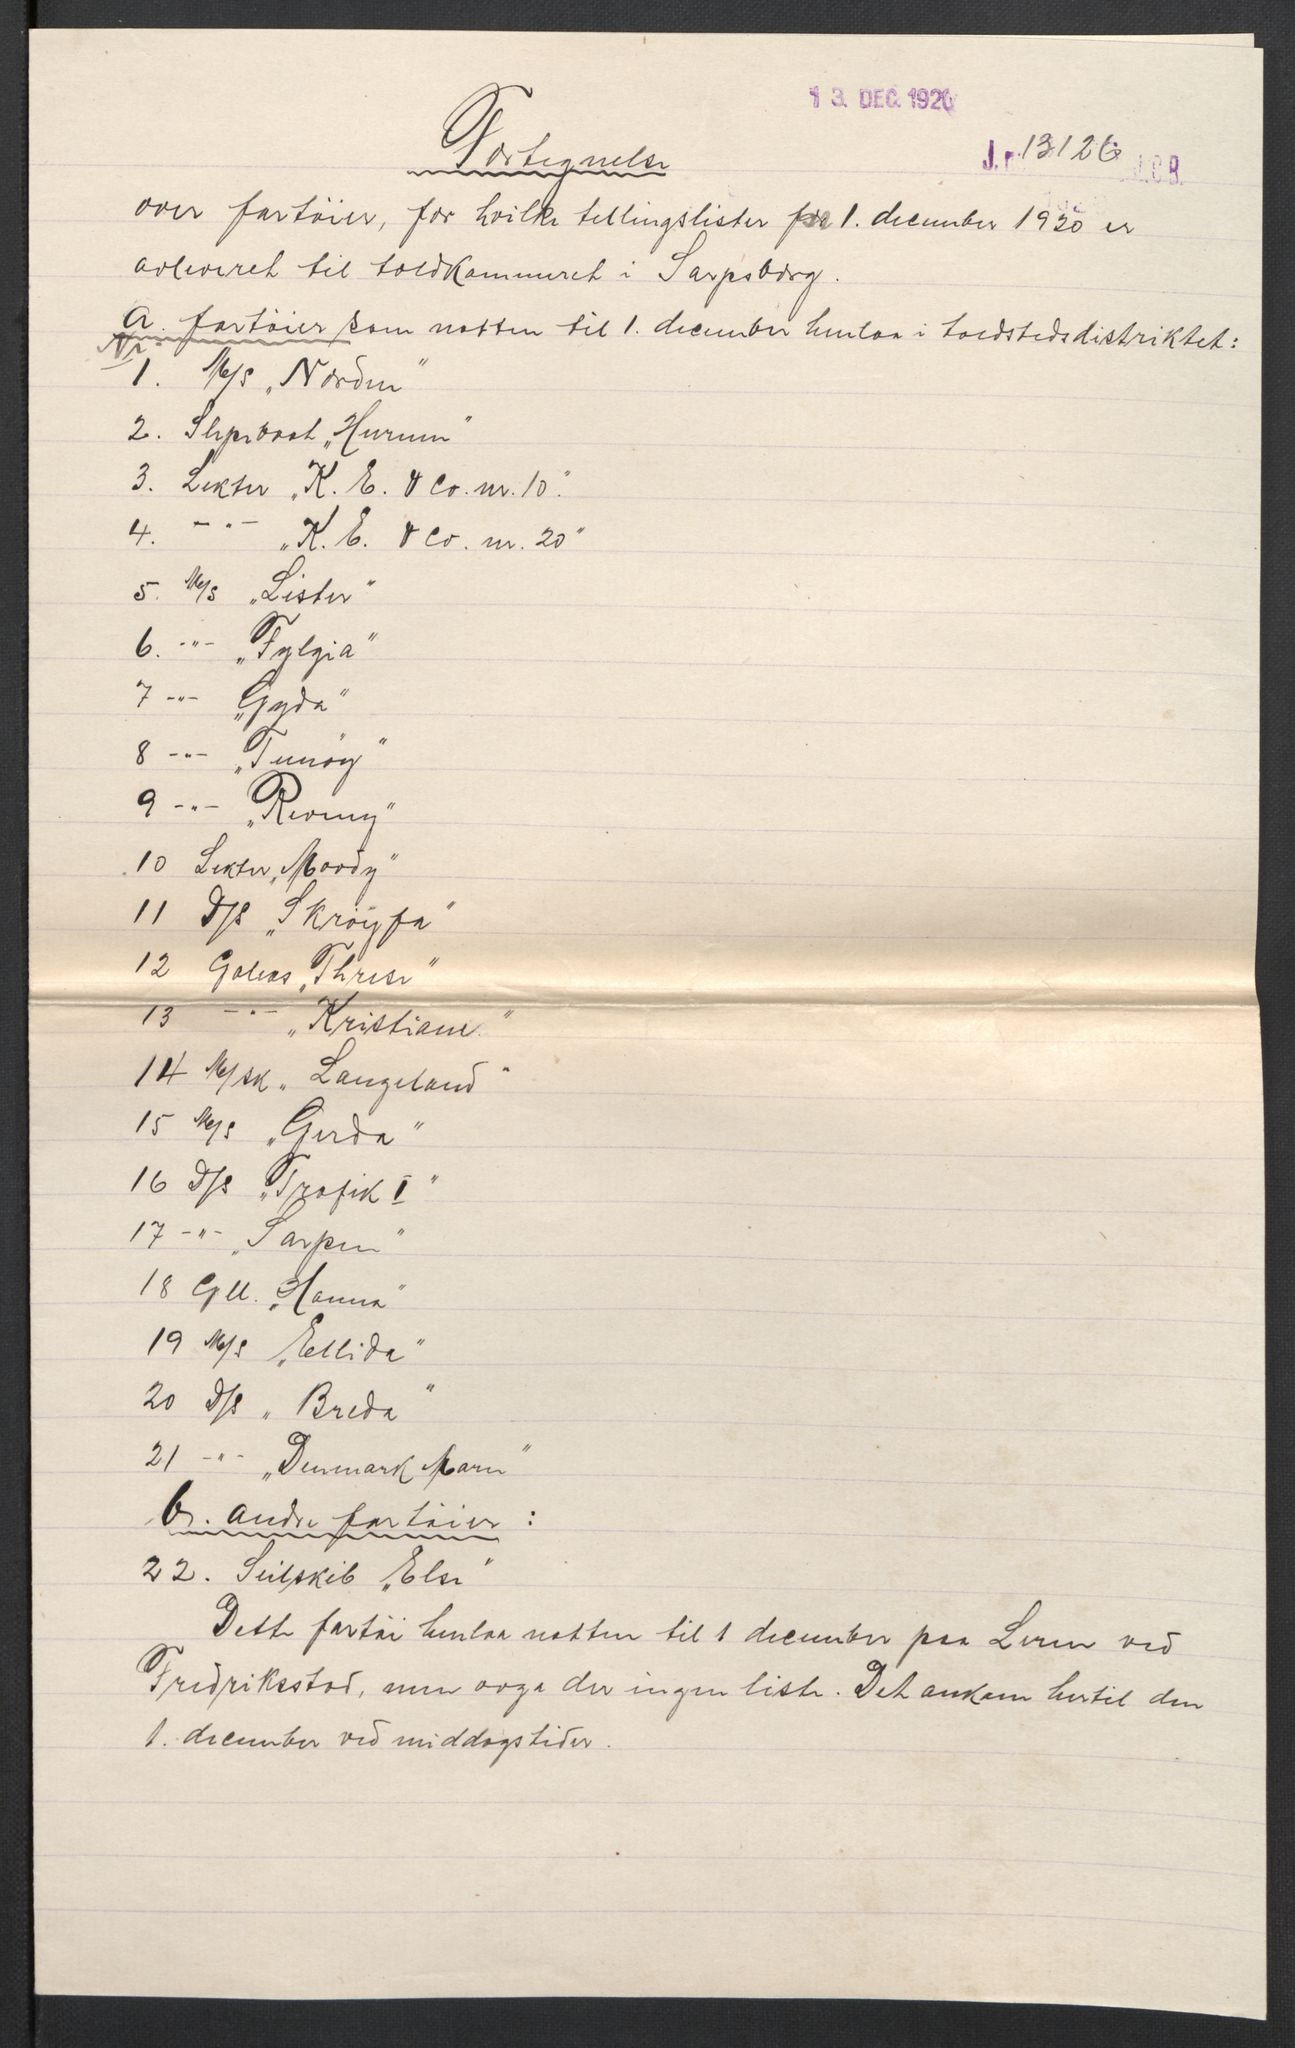 13. DEC. 1920
J. n. 13126 S.C.B.
Fortegnelse
over fartöier, for hvilke tellingslister fra 1. december 1920 er
avleveret til toldkammeret i Sarpsborg.
a. fartöier som natten til 1. december henlaa i toldstedsdistriktet:
Nr.
1. M/S „Norden"
2. Slæpebaat „Hurum"
3. Lekter „K. E. & Co. nr. 10."
4. -"- „K. E. & Co. nr. 20"
5. M/S „Lister"
6. -"- „Fylgia"
7 -"- „Gyda"
8 -"- „Tunöy"
9 -"- „Reveng"
10 Lekter „Moody"
11 D/S „Skröyfa"
12 Galeas „Threse"
13 -"- „Kristiane"
14 M/sk „Langeland"
15 M/S „Gerda"
16 D/S „Trafik I"
17 -"- „Sarpen"
18 Gll. „Hanna"
19 M/S „Ellida"
20 D/S „Breda"
21 -"- „Denmark Marn"
b. andre fartöier:
22. Seilskib „Else"
Dette fartöi henlaa natten til 1 december paa Leren ved
Fredriksstad, men avga der ingen liste. Det ankom hertil den
1. december ved middagstider.